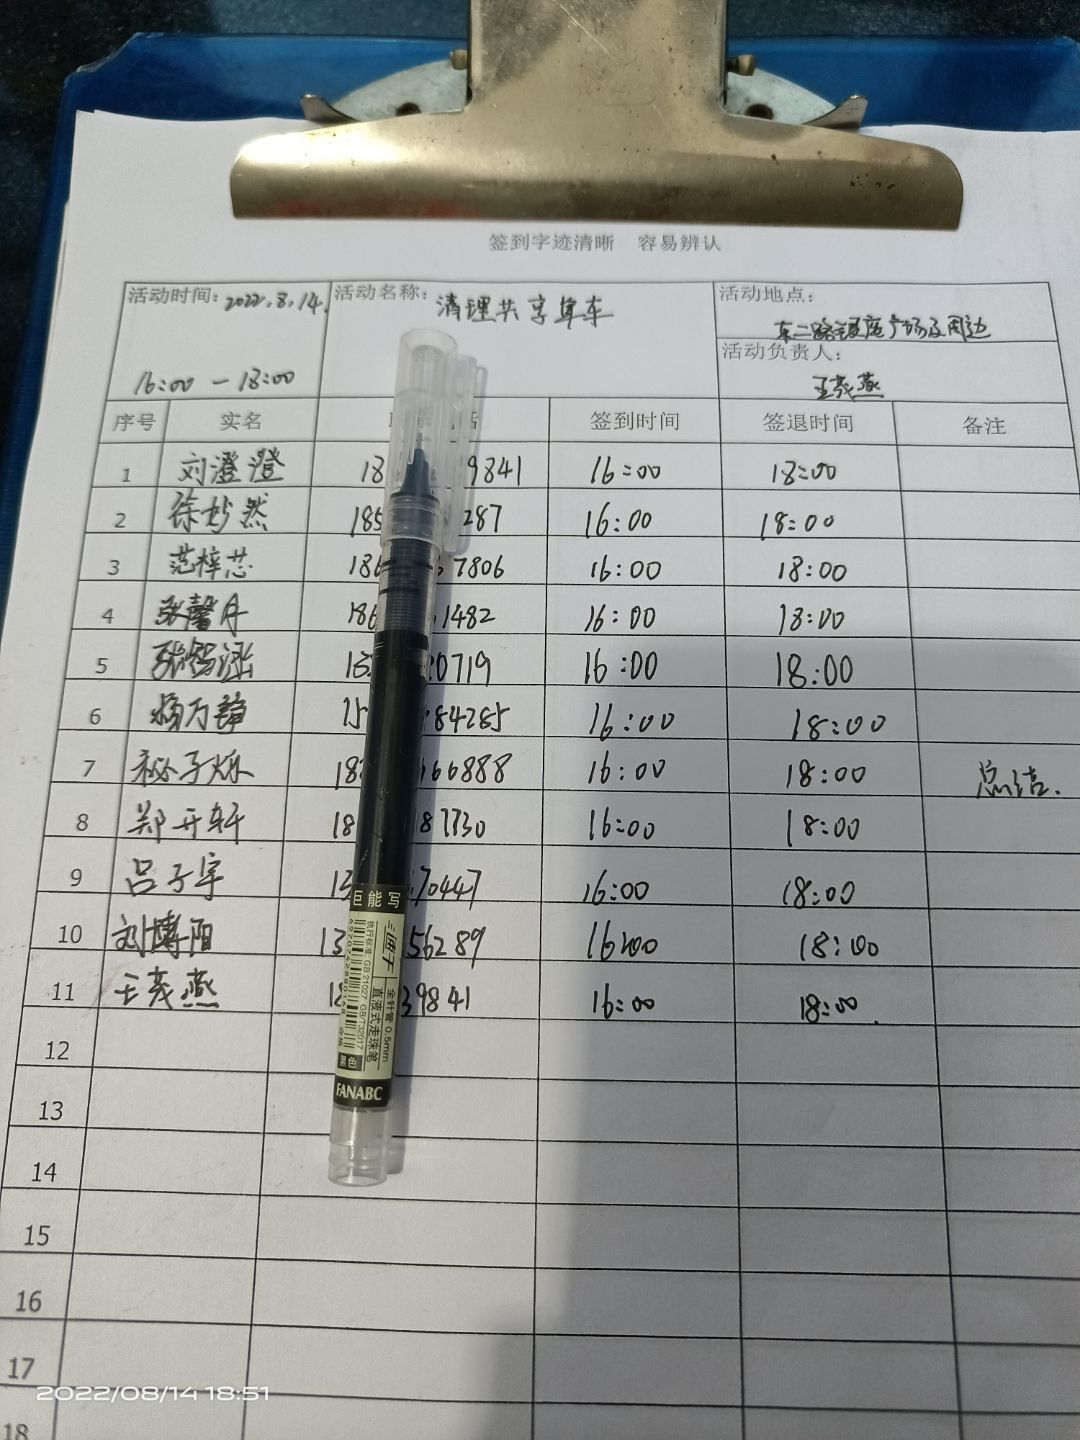 签到字迹清晰 容易辨认
活动时间: 2022.8.14. 活动名称: 清理共享单车 活动地点:
东二路银座广场及周边
16:00 — 18:00 活动负责人:
王茂燕
序号 实名 话 签到时间 签退时间 备注
1 刘澄澄 18 9841 16:00 18:00
2 徐妙然 185 287 16:00 18:00
3 范梓芯 186 7806 16:00 18:00
4 张馨月 186 1482 16:00 18:00
5 张智涵 0719 16:00 18:00
6 杨万静 15 84285 16:00 18:00
7 秘子烁 18 66888 16:00 18:00 总结.
8 郑开轩 18 87730 16:00 18:00
9 吕子宇 13 70447 16:00 18:00
10 刘博阳 13 56289 16:00 18:00
11 王茂燕 39841 16:00 18:00.
12
13
14
15
16
17
18
巨能写
直液式走珠笔
全针管 0.5mm
执行标准: GB 21027 GB/T 32017
黑色
FANABC
2022/08/14 18:51